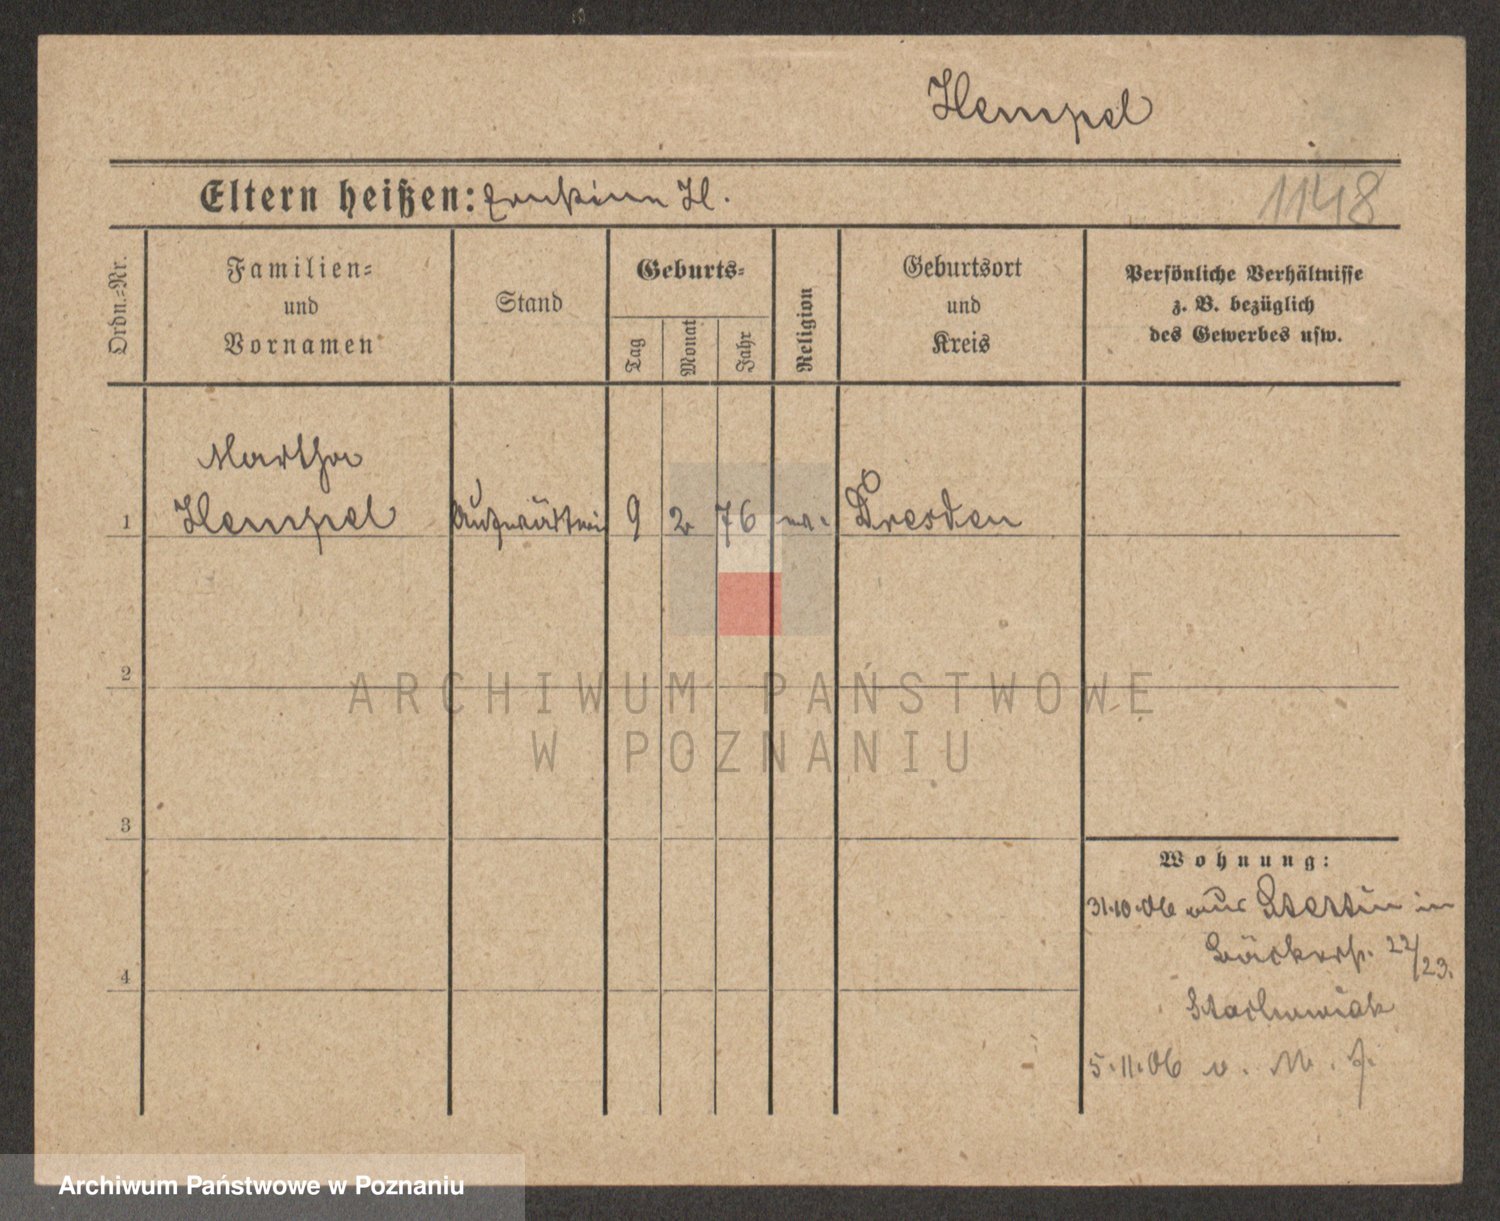 Hempel
Eltern heißen: H.
1148
Ordn.=Nr.
Familien=
und
Vornamen
Stand
Geburts=
Tag
Monat
Jahr
Religion
Geburtsort
und
Kreis
Persönliche Verhältnisse
z. B. bezüglich
des Gewerbes usw.
Martha
1 Hempel Aufwärterin 9 2 76 ev. Dresden
2
3
4
Wohnung:
31.10.06 aus Stettin in
Bäckerstr. 22/23.
Stachowiak
5.11.06 v.
ARCHIWUM PAŃSTWOWE
W POZNANIU
Archiwum Państwowe w Poznaniu